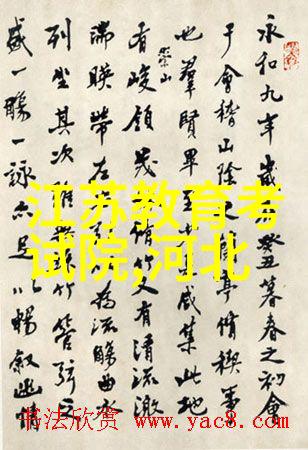 永和九年歲癸丑暮春之初會
于會稽山陰亭脩稧事
也羣賢畢至咸集此地
崇山
有峻領茂脩竹又有清流激
湍暎帶左為流觴曲水
列坐其次雖無竹管弦之
盛一觴一詠亦足以暢敘幽情
江苏教育考
试院,河北
书法欣赏 www.yac8.com